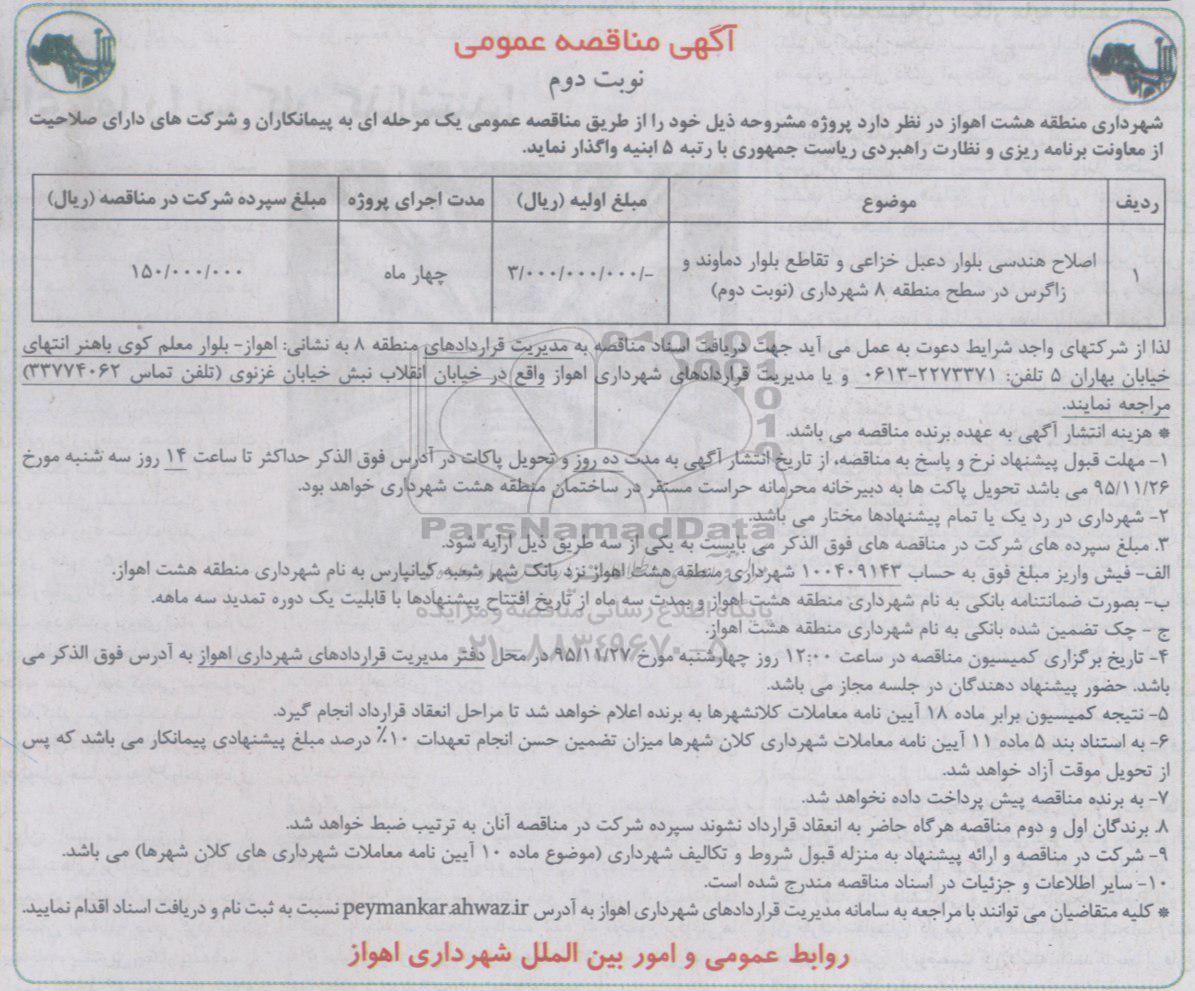 آگهی مناقصه عمومی
نوبت دوم
شهرداری منطقه هشت اهواز در نظر دارد پروژه مشروحه ذیل خود را از طریق مناقصه عمومی یک مرحله ای به پیمانکاران و شرکت های دارای صلاحیت
از معاونت برنامه ریزی و نظارت راهبردی ریاست جمهوری با رتبه ۵ ابنیه واگذار نماید.
ردیف موضوع مبلغ اولیه (ریال) مدت اجرای پروژه مبلغ سپرده شرکت در مناقصه (ریال)
۱ اصلاح هندسی بلوار دعبل خزاعی و تقاطع بلوار دماوند و زاگرس در سطح منطقه ۸ شهرداری (نوبت دوم) ۳/۰۰۰/۰۰۰/۰۰۰/- چهار ماه ۱۵۰/۰۰۰/۰۰۰
لذا از شرکتهای واجد شرایط دعوت به عمل می آید جهت دریافت اسناد مناقصه به مدیریت قراردادهای منطقه ۸ به نشانی: اهواز- بلوار معلم کوی باهنر انتهای
خیابان بهاران ۵ تلفن: ۲۲۷۳۳۷۱-۰۶۱۳ و یا مدیریت قراردادهای شهرداری اهواز واقع در خیابان انقلاب نبش خیابان غزنوی (تلفن تماس ۳۳۷۷۴۰۶۲)
مراجعه نمایند.
* هزینه انتشار آگهی به عهده برنده مناقصه می باشد.
۱- مهلت قبول پیشنهاد نرخ و پاسخ به مناقصه، از تاریخ انتشار آگهی به مدت ده روز و تحویل پاکات در آدرس فوق الذکر حداکثر تا ساعت ۱۴ روز سه شنبه مورخ
۹۵/۱۱/۲۶ می باشد تحویل پاکت ها به دبیرخانه محرمانه حراست مستقر در ساختمان منطقه هشت شهرداری خواهد بود.
۲- شهرداری در رد یک یا تمام پیشنهادها مختار می باشد.
۳. مبلغ سپرده های شرکت در مناقصه های فوق الذکر می بایست به یکی از سه طریق ذیل ارایه شود.
الف- فیش واریز مبلغ فوق به حساب ۱۰۰۴۰۹۱۴۳ شهرداری منطقه هشت اهواز نزد بانک شهر شعبه کیانپارس به نام شهرداری منطقه هشت اهواز.
ب- بصورت ضمانتنامه بانکی به نام شهرداری منطقه هشت اهواز و بمدت سه ماه از تاریخ افتتاح پیشنهادها با قابلیت یک دوره تمدید سه ماهه.
ج - چک تضمین شده بانکی به نام شهرداری منطقه هشت اهواز.
۴- تاریخ برگزاری کمیسیون مناقصه در ساعت ۱۲:۰۰ روز چهارشنبه مورخ ۹۵/۱۱/۲۷ در محل دفتر مدیریت قراردادهای شهرداری اهواز به آدرس فوق الذکر می
باشد. حضور پیشنهاد دهندگان در جلسه مجاز می باشد.
۵- نتیجه کمیسیون برابر ماده ۱۸ آیین نامه معاملات کلانشهرها به برنده اعلام خواهد شد تا مراحل انعقاد قرارداد انجام گیرد.
۶- به استناد بند ۵ ماده ۱۱ آیین نامه معاملات شهرداری کلان شهرها میزان تضمین حسن انجام تعهدات ۱۰٪ درصد مبلغ پیشنهادی پیمانکار می باشد که پس
از تحویل موقت آزاد خواهد شد.
۷- به برنده مناقصه پیش پرداخت داده نخواهد شد.
۸. برندگان اول و دوم مناقصه هرگاه حاضر به انعقاد قرارداد نشوند سپرده شرکت در مناقصه آنان به ترتیب ضبط خواهد شد.
۹- شرکت در مناقصه و ارائه پیشنهاد به منزله قبول شروط و تکالیف شهرداری (موضوع ماده ۱۰ آیین نامه معاملات شهرداری های کلان شهرها) می باشد.
۱۰- سایر اطلاعات و جزئیات در اسناد مناقصه مندرج شده است.
* کلیه متقاضیان می توانند با مراجعه به سامانه مدیریت قراردادهای شهرداری اهواز به آدرس peymankar.ahwaz.ir نسبت به ثبت نام و دریافت اسناد اقدام نمایید.
روابط عمومی و امور بین الملل شهرداری اهواز
ParsNamadData
پایگاه اطلاع رسانی مناقصه و مزایده
۰۲۱-۸۸۳۴۹۶۷۰-۵